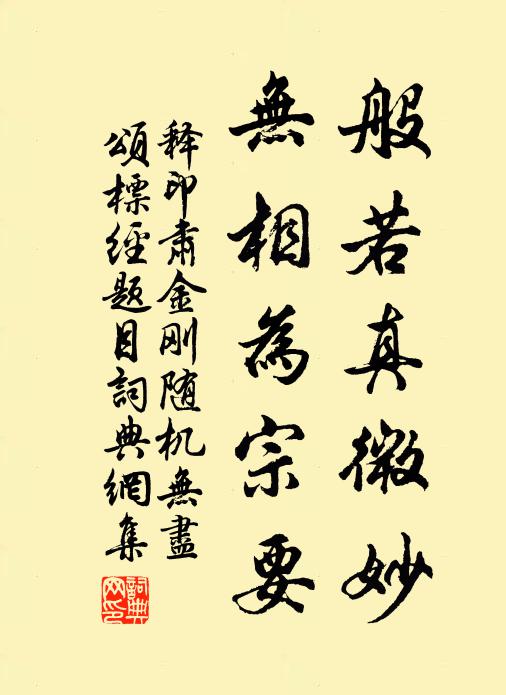 般若真微妙
無相為宗要
释印肃金刚随机無盡
頌標經題目詞典網集
詞典网印